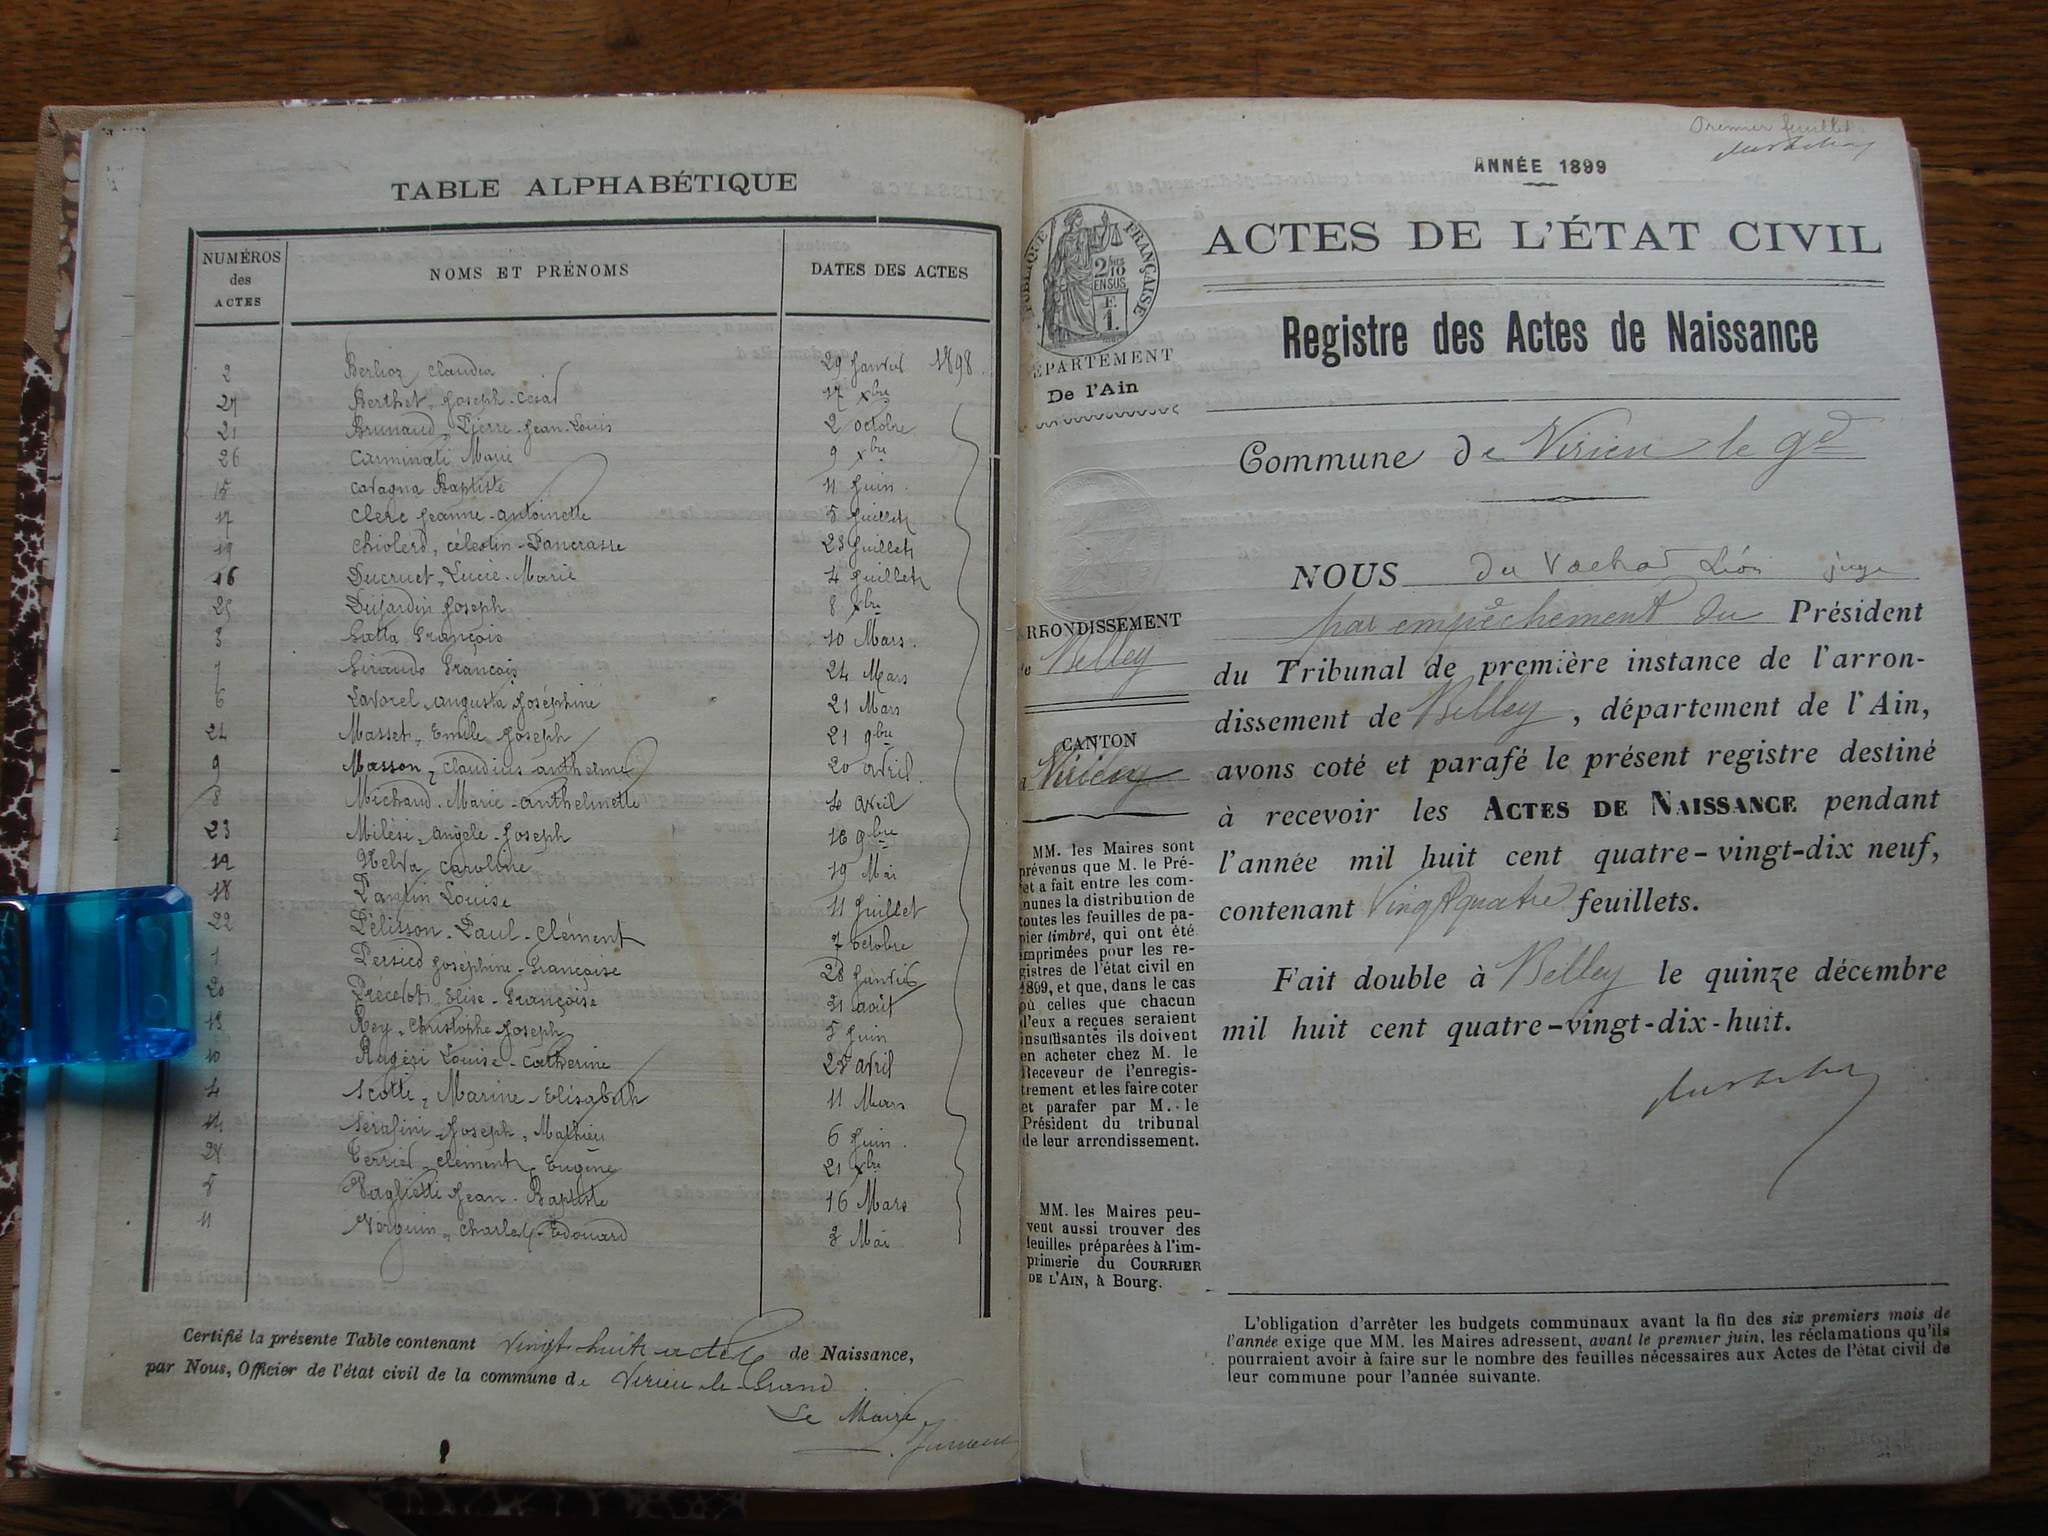 TABLE ALPHABÉTIQUE
NUMÉROS des ACTES NOMS ET PRÉNOMS DATES DES ACTES
2 Berlioz Claudia 29 Janvier 1898
27 Berthet, Joseph-César 17 xbre
21 Brunaud, Pierre-Jean-Louis 2 octobre
26 Carminati Marie 9 xbre
15 Cavagna Baptiste 11 Juin
17 Clerc Jeanne-Antoinette 5 Juillet
19 Chiolerd, Célestin-Pancrasse 23 Juillet
16 Ducruet, Lucie-Marie 4 Juillet
25 Dujardin Joseph 8 xbre
3 François 10 Mars
7 François 24 Mars
6 Lavorel Augusta Joséphine 21 Mars
24 Masset, Emile Joseph 21 9bre
9 Masson, Claudius Anthelme 20 Avril
8 Michaud, Marie-Anthelmette 4 Avril
23 Milési, Angèle-Joseph 18 9bre
12 Caroline 19 Mai
18 Pantin Louise 11 Juillet
22 Pélisson-Paul-Clément 7 octobre
1 Joséphine-Françoise 28 Janvier
20 Elise-Françoise 21 août
13 Rey, Christophe Joseph 5 Juin
10 Louise-Catherine 25 Avril
4 Scotti, Marine-Elisabeth 11 Mars
14 Serafini Joseph, Mathieu 6 Juin
28 Clément Eugène 21 xbre
5 Vaglietti Jean-Baptiste 16 Mars
11 Verguin, Charles-Edouard 3 Mai
Certifié la présente Table contenant vingt-huit actes de Naissance,
par Nous, Officier de l'état civil de la commune de Virieu-le-Grand
Le Maire
Premier feuillet
ANNÉE 1899
ACTES DE L'ÉTAT CIVIL
RÉPUBLIQUE FRANÇAISE
2 10 EN SUS
F. 1.
DÉPARTEMENT
De l'Ain
Registre des Actes de Naissance
Commune de Virieu le gd
ARRONDISSEMENT
de Belley
CANTON
d Virieu
NOUS du Vachat Léon juge
par empêchement du Président
du Tribunal de première instance de l'arron-
dissement de Belley, département de l'Ain,
avons coté et parafé le présent registre destiné
à recevoir les ACTES DE NAISSANCE pendant
l'année mil huit cent quatre-vingt-dix neuf,
contenant Vingt quatre feuillets.
Fait double à Belley le quinze décembre
mil huit cent quatre-vingt-dix-huit.
MM. les Maires sont
prévenus que M. le Pré-
fet a fait entre les com-
munes la distribution de
toutes les feuilles de pa-
pier timbré, qui ont été
imprimées pour les re-
gistres de l'état civil en
1899, et que, dans le cas
où celles que chacun
d'eux a reçues seraient
insuffisantes ils doivent
en acheter chez M. le
Receveur de l'enregis-
trement et les faire coter
et parafer par M. le
Président du tribunal
de leur arrondissement.
MM. les Maires peu-
vent aussi trouver des
feuilles préparées à l'im-
primerie du COURRIER
DE L'AIN, à Bourg.
L'obligation d'arrêter les budgets communaux avant la fin des six premiers mois de
l'année exige que MM. les Maires adressent, avant le premier juin, les réclamations qu'ils
pourraient avoir à faire sur le nombre des feuilles nécessaires aux Actes de l'état civil de
leur commune pour l'année suivante.